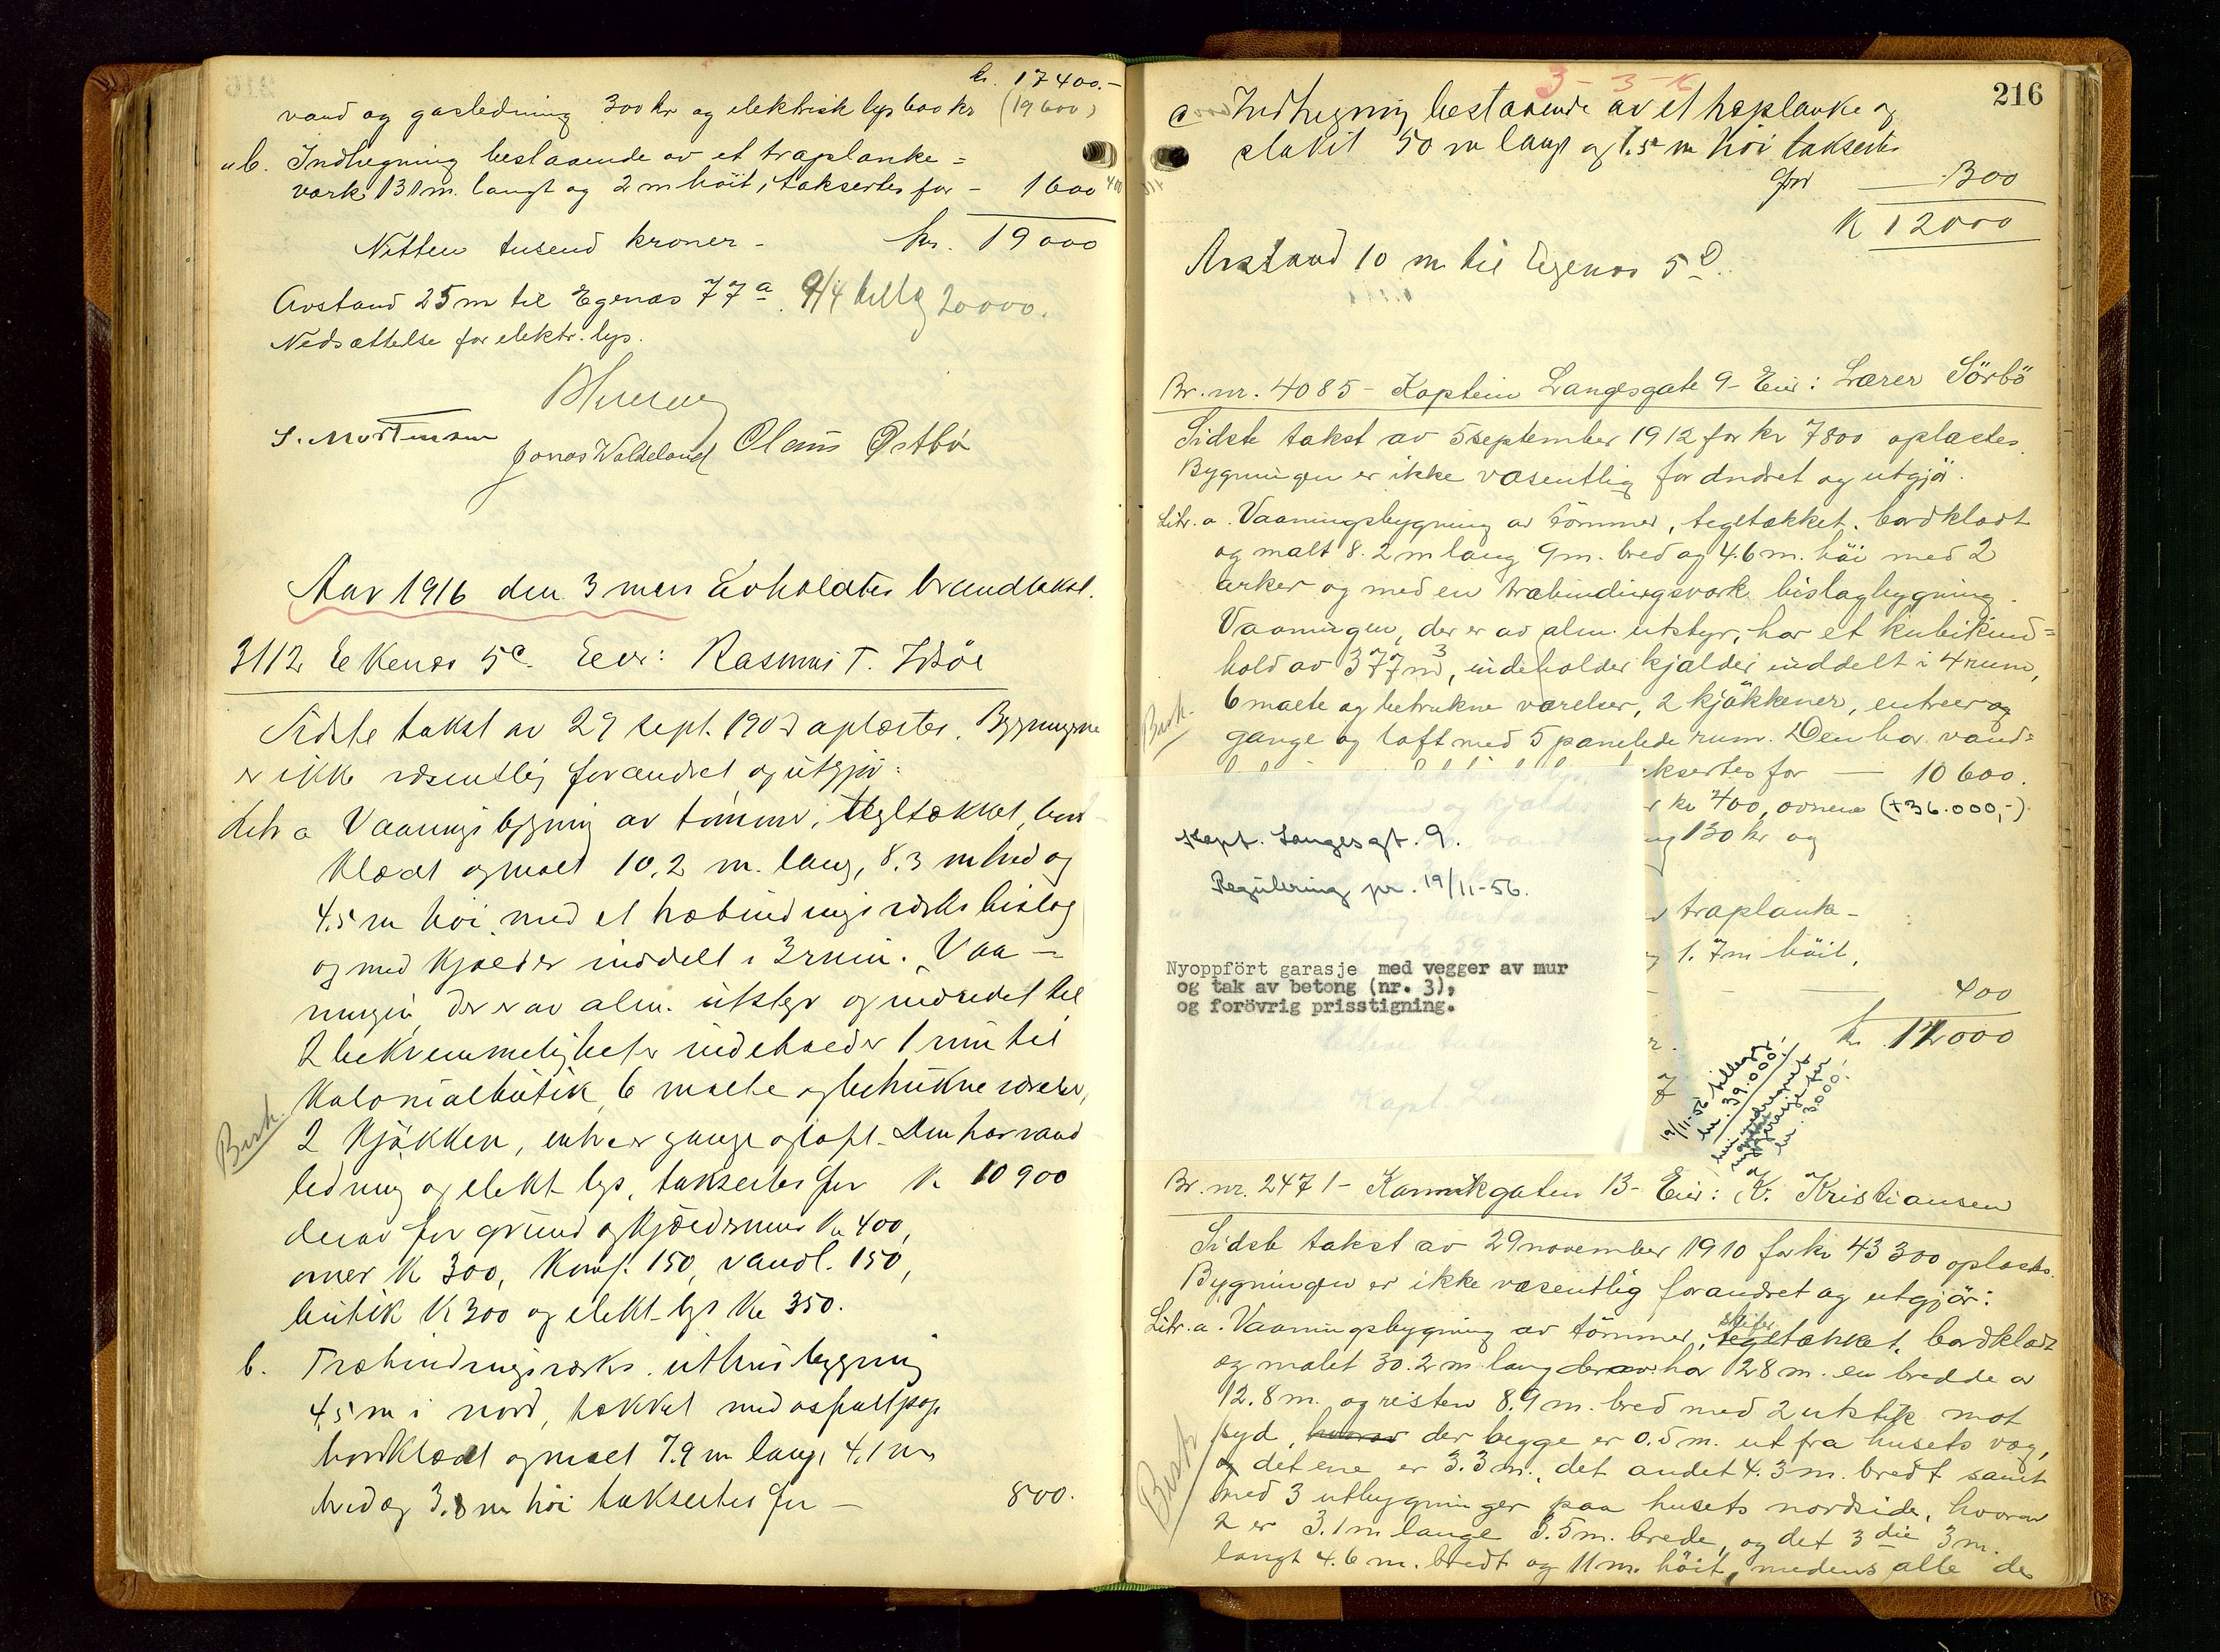 kr. 17400.-
vand og gasledning 300 kr og elektrisk lys 600 kr (19600)
" b. Indhegning bestaaende av et træplanke=
værk 130 m. langt og 2 m høit, taksertes for - 1600
Nitten tusend kroner - kr. 19000
Avstand 25 m til Egenæs 77a. 9/4 20000.
Nedsættelse for elektr. lys.
S. Mortensen Jonas Waldeland Olaus Østbø
Aar 1916 den 3 mars avholdtes brandtakst.
3112 Ekenæs 5c. Eier: Rasmus T. Idsøe
Sidste takst av 29 sept. 190 oplæstes. Bygningerne
er ikke væsentlig forandret og utgjør:
Litr a Vaaningsbygning av tømmer, tegltækket, bord-
klædt og malt 10,2 m. lang, 8,3 m bred og
4,5 m høi med et træbindingsværks bislag
og med kjælder inddelt i 3 rum. Vaa-
ningen der er av alm. utstyr og indredet til
2 bekvemmeligheter indeholder 1 rum til
Kolonialbutik, 6 malte og betrukne værelser,
2 kjøkken, entreer gange og loft. Den har vand
ledning og elekt lys, taksertes for Kr 10900
Besk.
derav for grund og kjældermur Kr 400,
ovner Kr 300, Komf. 150, vandl. 150,
butik Kr 300 og elekt. lys Kr 350.
b. Træbindingsværks uthusbygning
4,5 m i nord, tækket med asfaltpap
bordklædt og malt 7.9 m lang, 4,1 m
bred og 3,8 m høi taksertes for - 800.
3-3-16
216
c Indhegning bestaaende av et træplanke og
stakit 50 m langt og 1.5 m høi taksertes
for 300
K 12000
Avstand 10 m til Egenæs 5d.
Br. nr. 4085 - Kaptein Langesgate 9 - Eier: Lærer Sörbö
Sidste takst av 5 september 1912 for kr 7800 oplæstes.
Bygningen er ikke væsentlig forandret og utgjör.
Litr. a. Vaaningsbygning av tömmer, tegltækket, bordklædt
og malt 8.2 m lang 9 m. bred og 4.6 m. höi med 2
arker og med en træbindingsværk bislagbygning.
Vaaningen, der er av alm. utstyr, har et kubikind=
hold av 377 m3, indeholder kjælder inddelt i 4 rum,
6 malte og betrukne værelser, 2 kjökkener, entreer og
Besk.
gange og loft med 5 panelede rum. Den har vand=
ksertes for - 10600.
r kr 400, ovnene (+36.000,-)
ng 130 kr og
Kapt. Langesgt. 9.
Regulering pr. 19/11-56.
Nyoppfört garasje med vegger av mur
og tak av betong (nr. 3),
og forövrig prisstigning.
træplank-
g 1.7 m höit,
400
kr. 12000
19/11-56 tillegg
kr. 39.000,-
heri medregnet
garasje for
kr. 3.000.-
Br. nr. 2471 - Kannikgaten 13 - Eier: K. Kristiansen
Sidste takst av 29 november 1910 for kr 43300 oplæstes.
Bygningen er ikke væsentlig forandret og utgjör:
Litr. a. Vaaningsbygning av tömmer, skifer tegltækket, bordklædt
og malet 30.2 m. lang derav har 12 8 m. en bredde av
12.8 m. og resten 8.9 m. bred med 2 utstik mot
syd, hvorav der begge er 0.5 m. ut fra husets væg,
og det ene er 3.3 m., det andet 4.3 m. bredt samt
Besk
med 3 utbygninger paa husets nordside, hvorav
2 er 3.1 m lange 3.5 m. brede, og det 3die 3 m.
langt 4.6 m. bredt og 11 m. höit, medens alle de